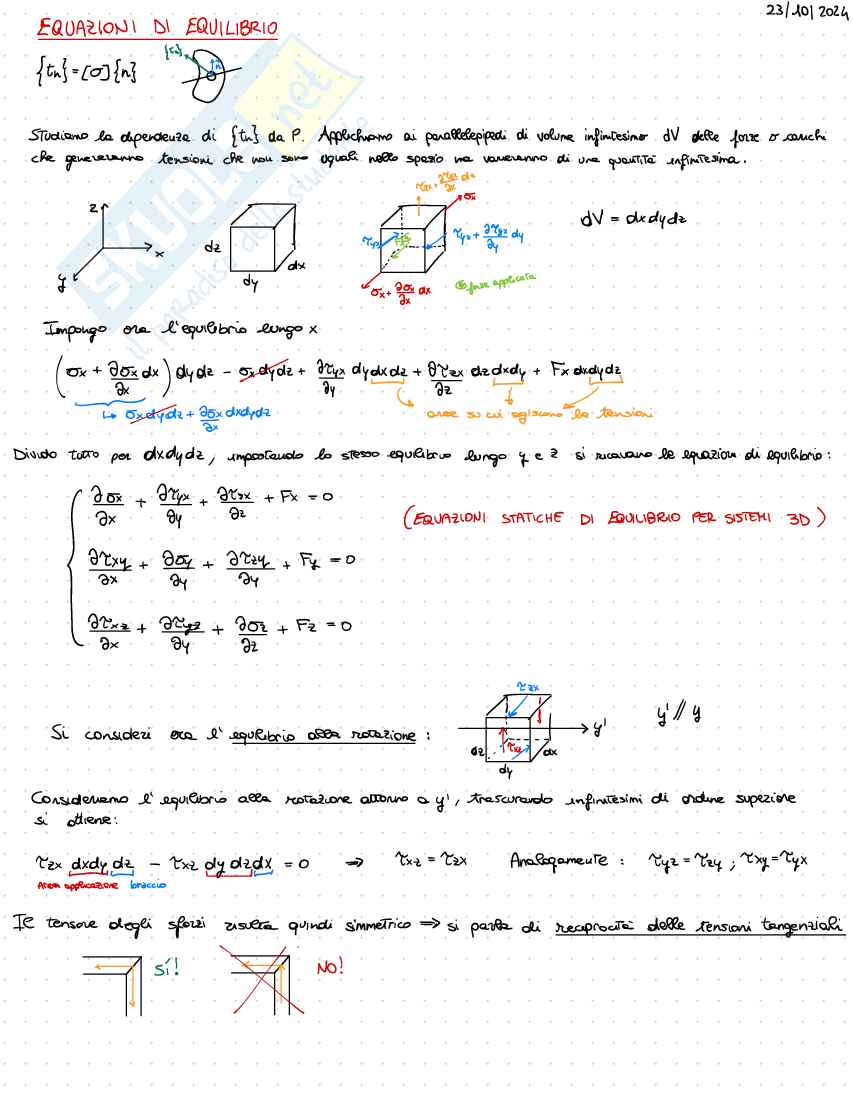 23/10/2024
EQUAZIONI DI EQUILIBRIO
{tn} = [σ]{n}
{tn}
n
Studiamo la dipendenza di {tn} da P. Applichiamo ai parallelepipedi di volume infinitesimo dV delle forze o carichi
che genereranno tensioni che non sono uguali nello spazio ma varieranno di una quantità infinitesima.
z
x
y
dz
dy
dx
τzx + ∂τzx/∂x dx
σx
τyx
τyx + ∂τyx/∂y dy
σx + ∂σx/∂x dx
forze applicata
dV = dxdydz
Impongo ora l'equilibrio lungo x
(σx + ∂σx/∂x dx) dydz - σx dydz + ∂τyx/∂y dydxdz + ∂τzx/∂z dzdxdy + Fx dxdydz
↳ σx dydz + ∂σx/∂x dxdydz
aree su cui agiscono le tensioni
Divido tutto per dxdydz, impostando lo stesso equilibrio lungo y e z si ricavano le equazioni di equilibrio:
∂σx/∂x + ∂τyx/∂y + ∂τzx/∂z + Fx = 0
(EQUAZIONI STATICHE DI EQUILIBRIO PER SISTEMI 3D)
∂τxy/∂x + ∂σy/∂y + ∂τzy/∂y + Fy = 0
∂τxz/∂x + ∂τyz/∂y + ∂σz/∂z + Fz = 0
Si consideri ora l'equilibrio alla rotazione:
τzx
y'
τxz
dz
dy
dx
y' // y
Consideriamo l'equilibrio alla rotazione attorno a y', trascurando infinitesimi di ordine superiore
si ottiene:
τzx dxdy dz - τxz dy dz dx = 0 ⇒ τxz = τzx Analogamente: τyz = τzy ; τxy = τyx
Area applicazione braccio
Il tensore degli sforzi risulta quindi simmetrico ⇒ si parla di reciprocità delle tensioni tangenziali
SÍ!
NO!
SKUOLA.net
il paradiso dello studente